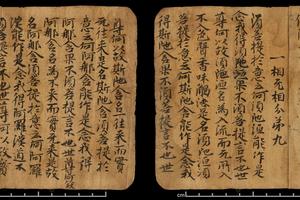 一相无相分第九
須菩提於意云何須陁洹能作是
念我得須陁洹果不須菩提言不也世
尊何以故須陁洹名為入流而无所入
不入色聲香味觸法是名須陁洹須
菩提於意云何斯陁含能作是念我
得斯陁含果不須菩提言不也世
尊何以故斯陁含名一往来而實
无往来是名斯陁含須菩提於
意云何阿那含能作是念我得
阿那含果不須菩提言不也世尊何以故
阿那含名為不来而實无来是故
名阿那含須菩提於意云何阿羅
漢能作是念我得阿羅漢道不
須菩提言不也世尊何以故實